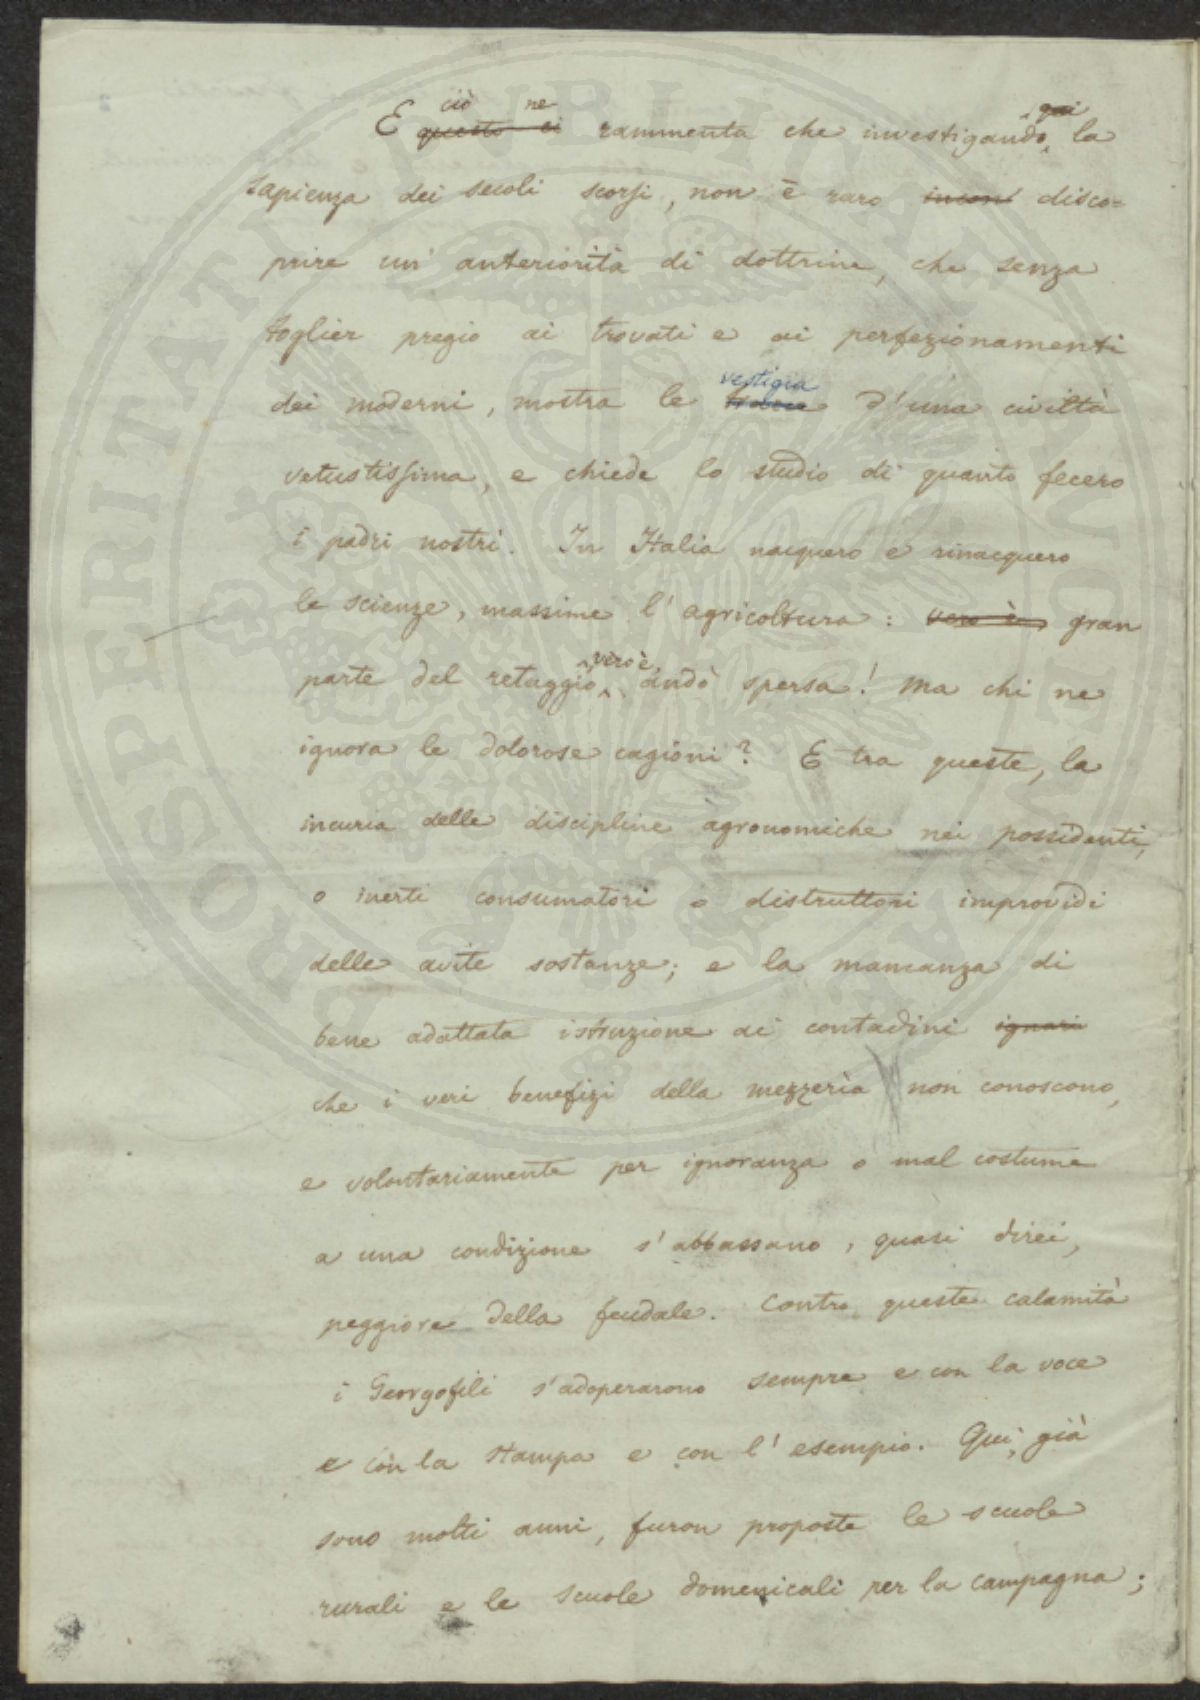 ciò ne qui
E questo ci rammenta che investigando, la
sapienza dei secoli scorsi, non è raro incont disco=
prire un' anteriorità di dottrine, che senza
toglier pregio ai trovati e ai perfezionamenti
vestigia
dei moderni, mostra le tracce d'una civiltà
vetustissima, e chiede lo studio di quanto fecero
i padri nostri. In Italia nacquero e rinacquero
le scienze, massime l'agricoltura: vero è, gran
vero è,
parte del retaggio, andò spersa! Ma chi ne
ignora le dolorose cagioni? E tra queste, la
incuria delle discipline agronomiche nei possidenti,
o inerti consumatori o distruttori improvidi
delle avite sostanze; e la mancanza di
bene adattata istruzione ai contadini ignari
che i veri benefizi della mezzeria non conoscono,
e volontariamente per ignoranza o mal costume
a una condizione s'abbassano, quasi direi,
peggiore della feudale. Contro queste calamità
i Georgofili s'adoperarono sempre e con la voce
e con la stampa e con l'esempio. Qui, già
sono molti anni, furon proposte le scuole
rurali e le scuole domenicali per la campagna;
PROSPERITATI PUBLICAE AUGENDAE